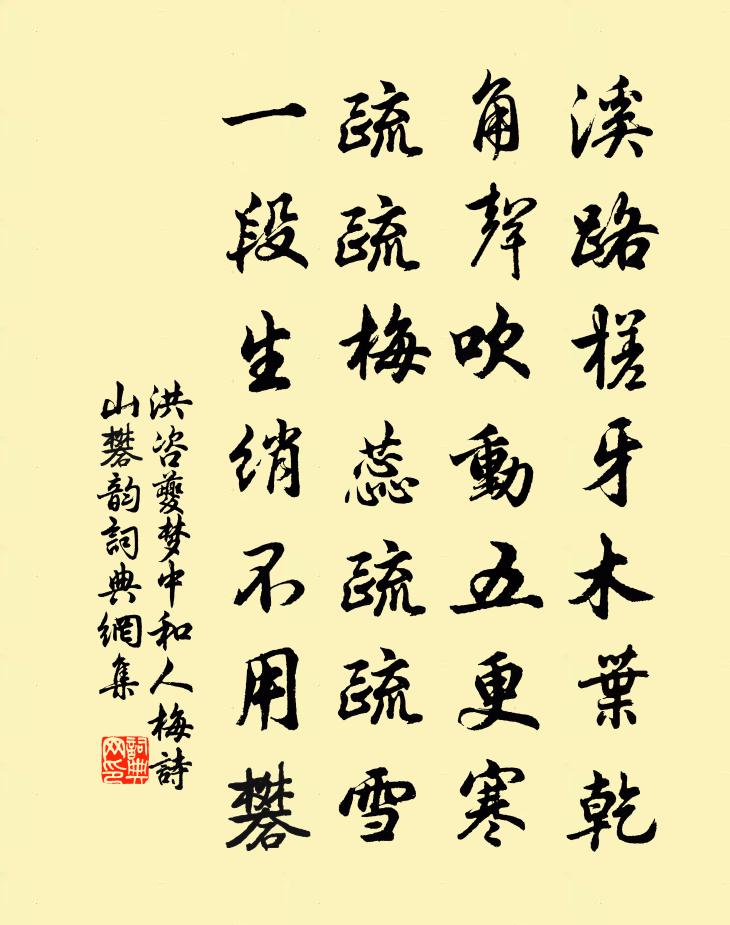 溪路槎牙木葉乾
角聲吹動五更寒
疏疏梅蕊疏疏雪
一段生綃不用礬
洪咨夔梦中和人梅詩
山礬韵詞典網集
詞典
网印